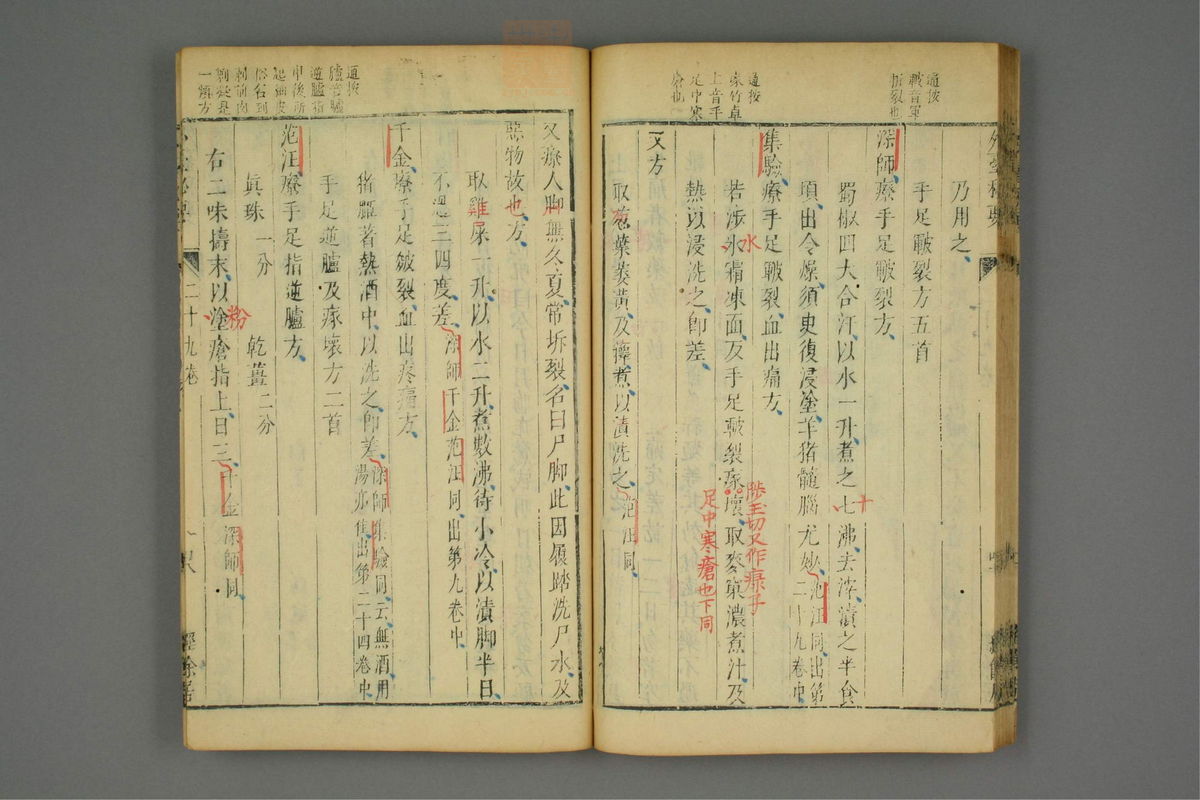 通按
皸音軍
拆裂也
乃用之
手足皸裂方五首
深師療手足皸裂方
蜀椒四大合汗以水一升煮之七沸去滓漬之半食
十
頃出令燥須臾復浸塗羊猪髓腦尤妙范汪同出第二十九卷中
集驗療手足皸裂血出痛方
若涉氷霜凍面及手足皸裂瘃壞取麥窠濃煮汁及
水
足中寒瘡也下同
熱以浸洗之卽差
又方
取葱葉萎黃及
煮以漬洗之范汪同
通按
瘃竹卓
上音手
足中寒
瘡也
又療人脚無冬夏常拆裂名曰尸脚此因履踏洗尸水及
惡物故也方
取雞屎一升以水二升煮數沸待小冷以漬脚半日
不過三四度差深師千金范汪同出第九卷中
千金療手足皴裂血出疼痛方
猪胵著熱酒中以洗之卽差深師集驗同云無酒用湯亦佳出第二十四卷中
手足逆臚及瘃壞方二首
范汪療手足指逆臚方
眞珠一分 乾薑二分
右二味擣末以塗瘡指上日三千金深師同
粉
通按
臚音臚
逆臚指
甲後所
起細皮
俗名到
一類方
二十九卷
經餘居